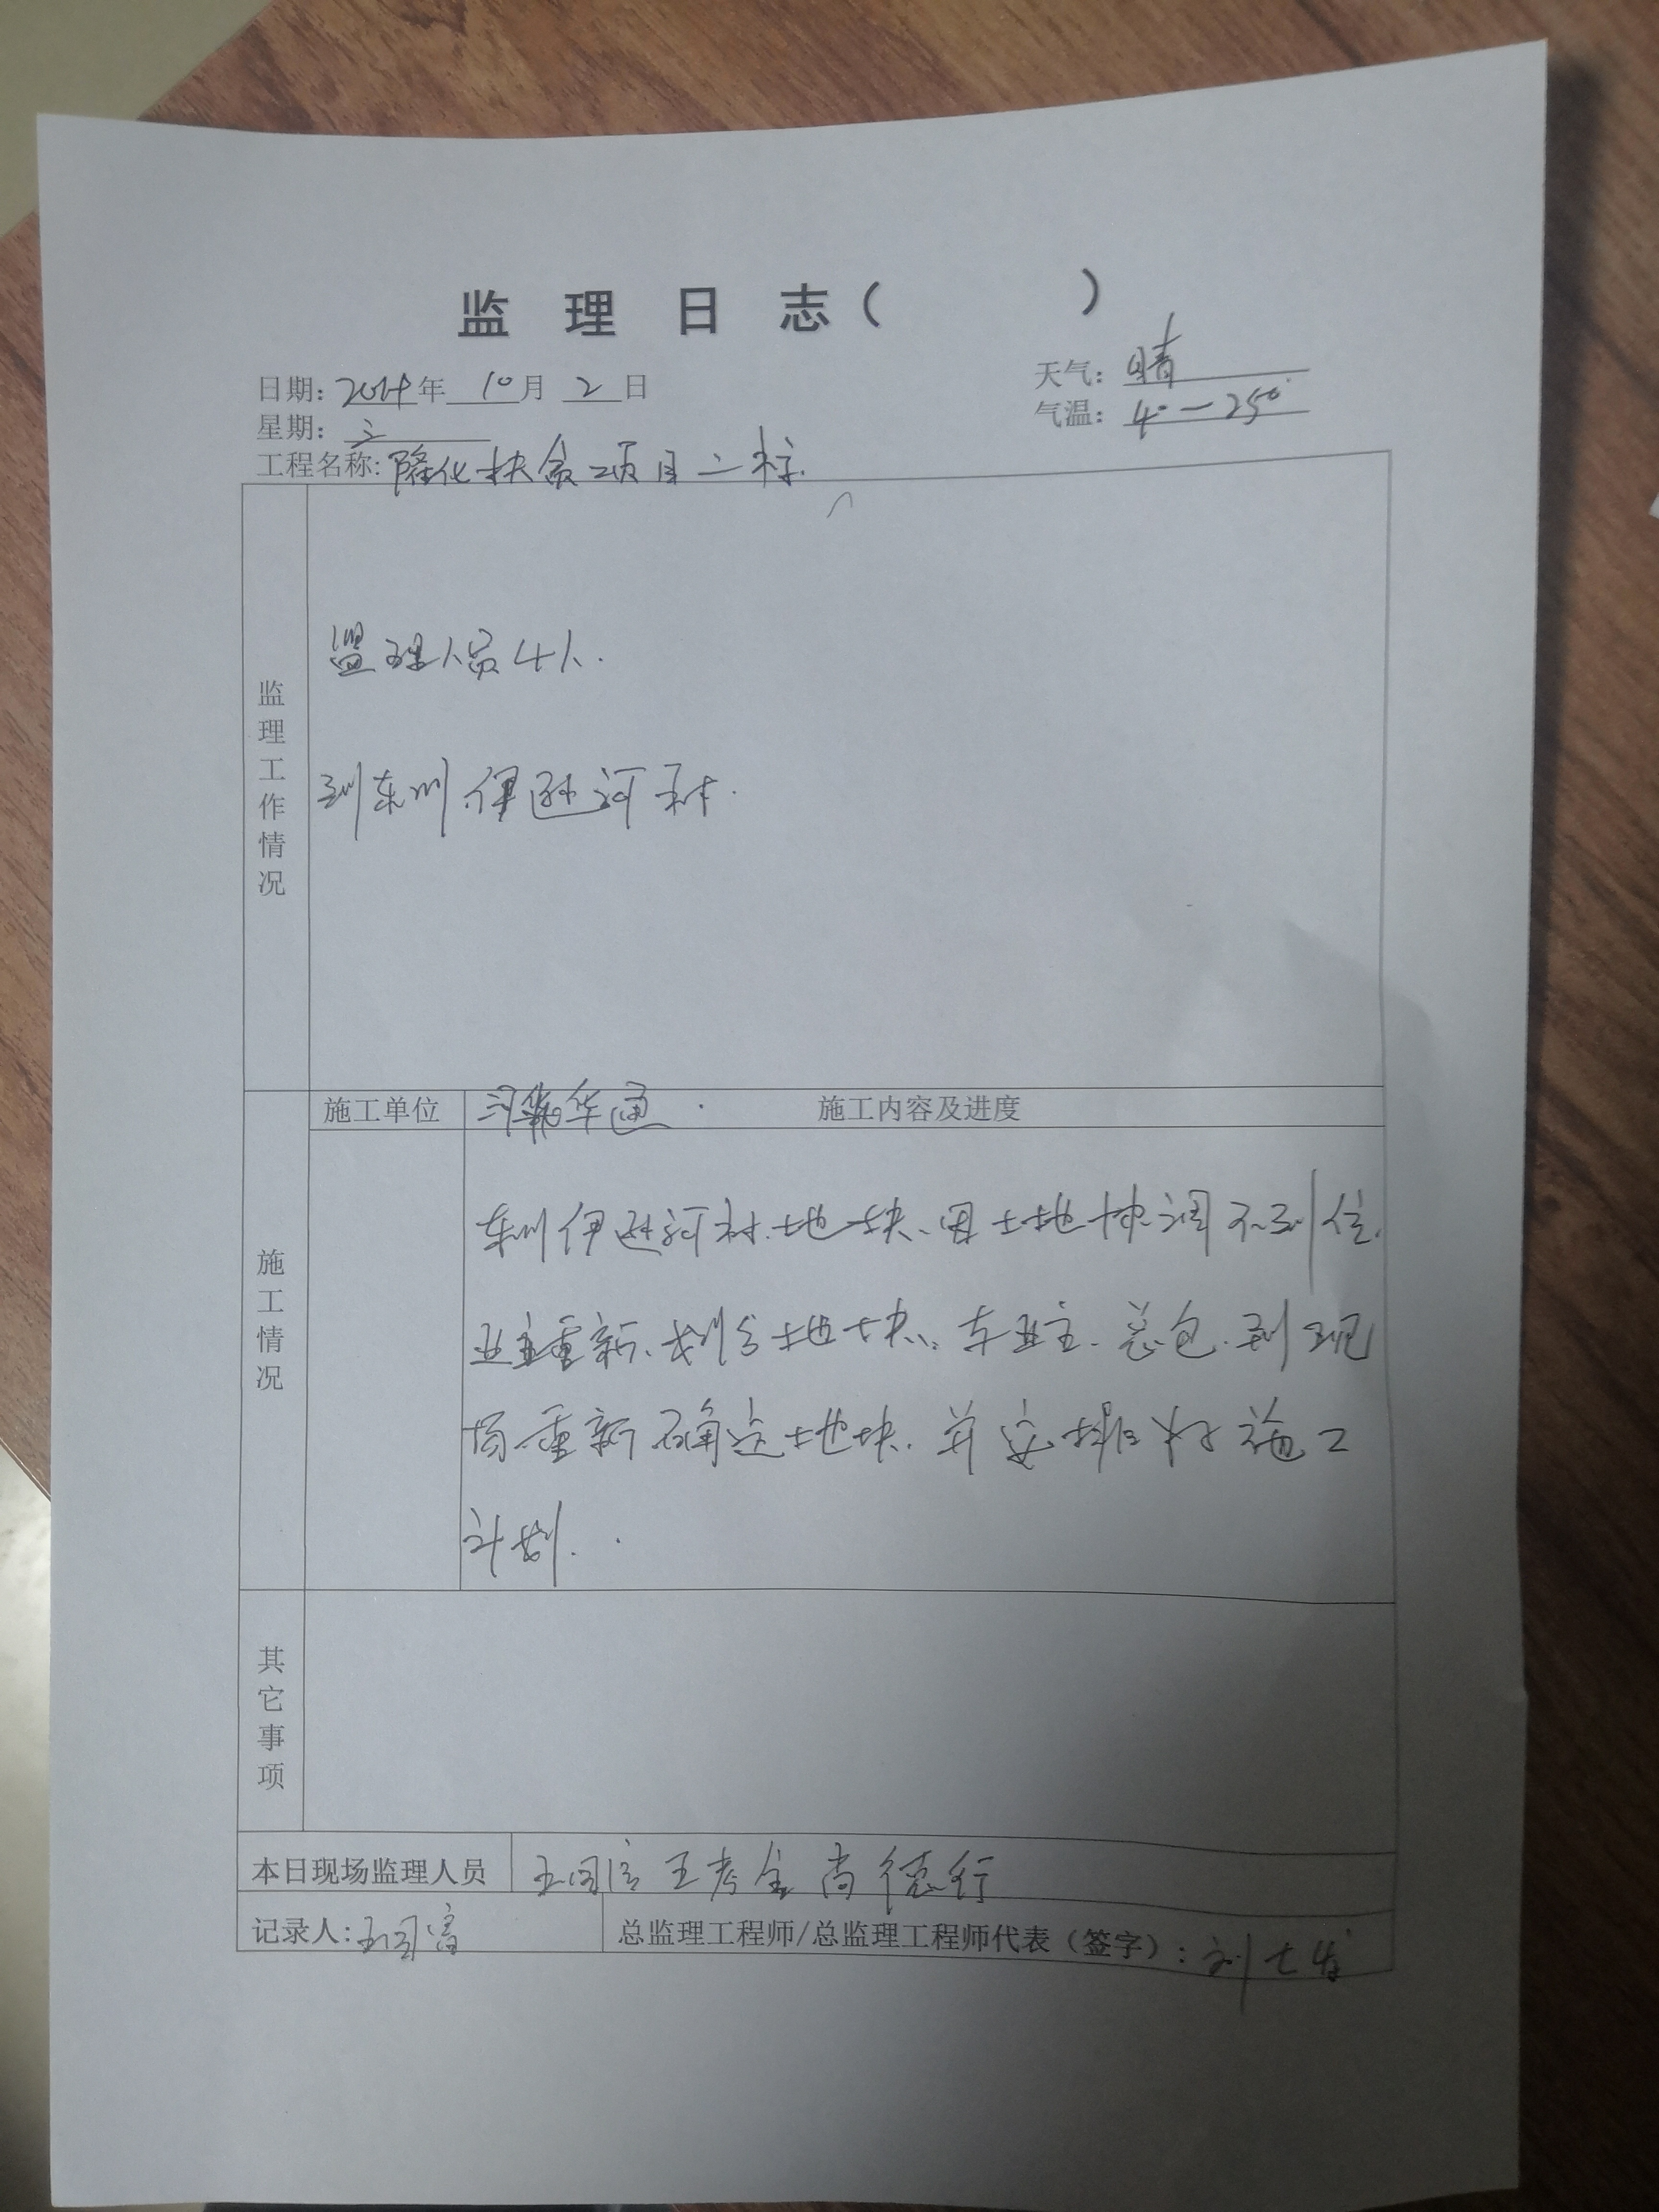 监 理 日 志（ ）
日期: 2024年 10月 2日
天气: 晴
星期: 三
气温: 4°—25°
工程名称: 隆化扶贫项目二标.
监理工作情况
监理人员4人.
到东川伊逊河村.
施工单位
华通.
施工内容及进度
施工情况
东川伊逊河村.地块、因土地协调不到位.
业主重新.划分地块. 业主.总包.到现
场重新确定地块.并安排好施工
计划.
其它事项
本日现场监理人员
王国 王孝金 尚德行
记录人: 王国
总监理工程师/总监理工程师代表（签字）: 刘